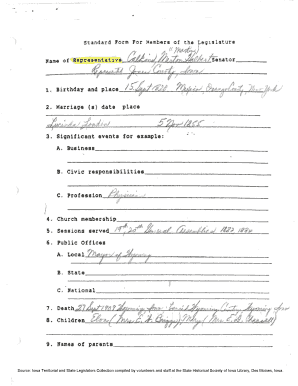 Standard Form For Members of the Legislature
"Martin"
Name of Representative Calkins, Marton Herbert Senator
Represented Jones County, Iowa
1. Birthday and place 15 Sept 1828 Mexico, Oswego County, New York
2. Marriage (s) date place
Lucinda Louden 5 Nov 1855
3. Significant events for example:
A. Business
B. Civic responsibilities
C. Profession Physician
4. Church membership
5. Sessions served 19th, 20th General Assemblies 1882, 1884
6. Public Offices
A. Local Mayor of Wyoming
B. State
C. National
7. Death 27 Sept 1909 Wyoming, Iowa Buried Wyoming City, Wyoming, Iowa
8. Children (Mrs. E. H. (Mrs.
9. Names of parents
Source: Iowa Territorial and State Legislators Collection compiled by volunteers and staff at the State Historical Society of Iowa Library, Des Moines, Iowa.